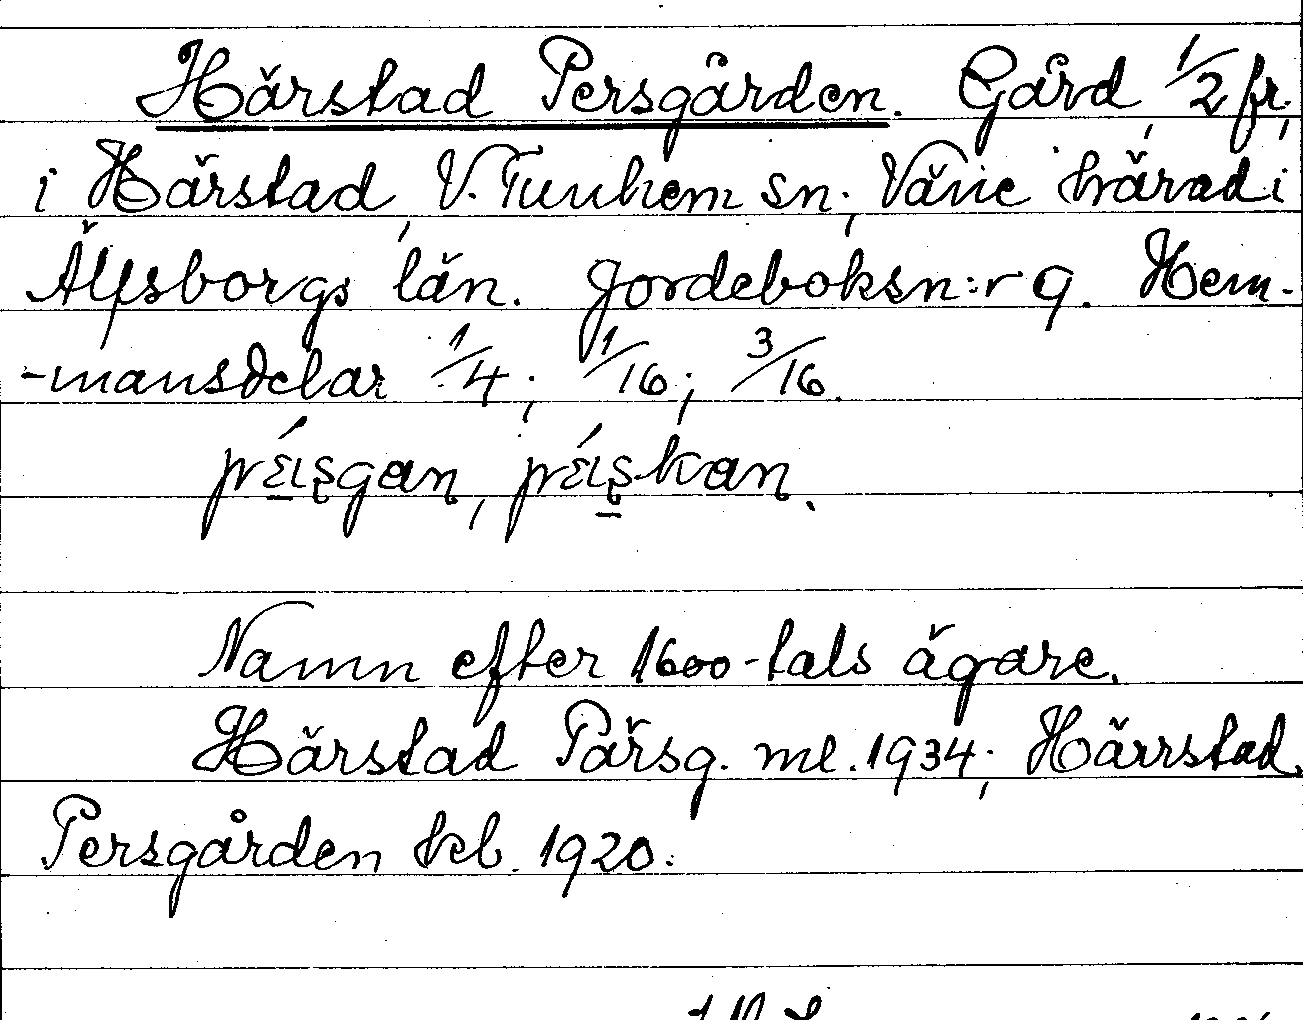 Härstad Persgården. Gård, 1/2 fr,
i Härstad, V. Tunhem sn; Väne härad i
Älfsborgs län. Jordeboksn:r 9. Hem-
-mansdelar 1/4; 1/16; 3/16.
Namn efter 1600-tals ägare.
Härstad Pärsg. ml. 1934; Härrstad
Persgården kb. 1920.